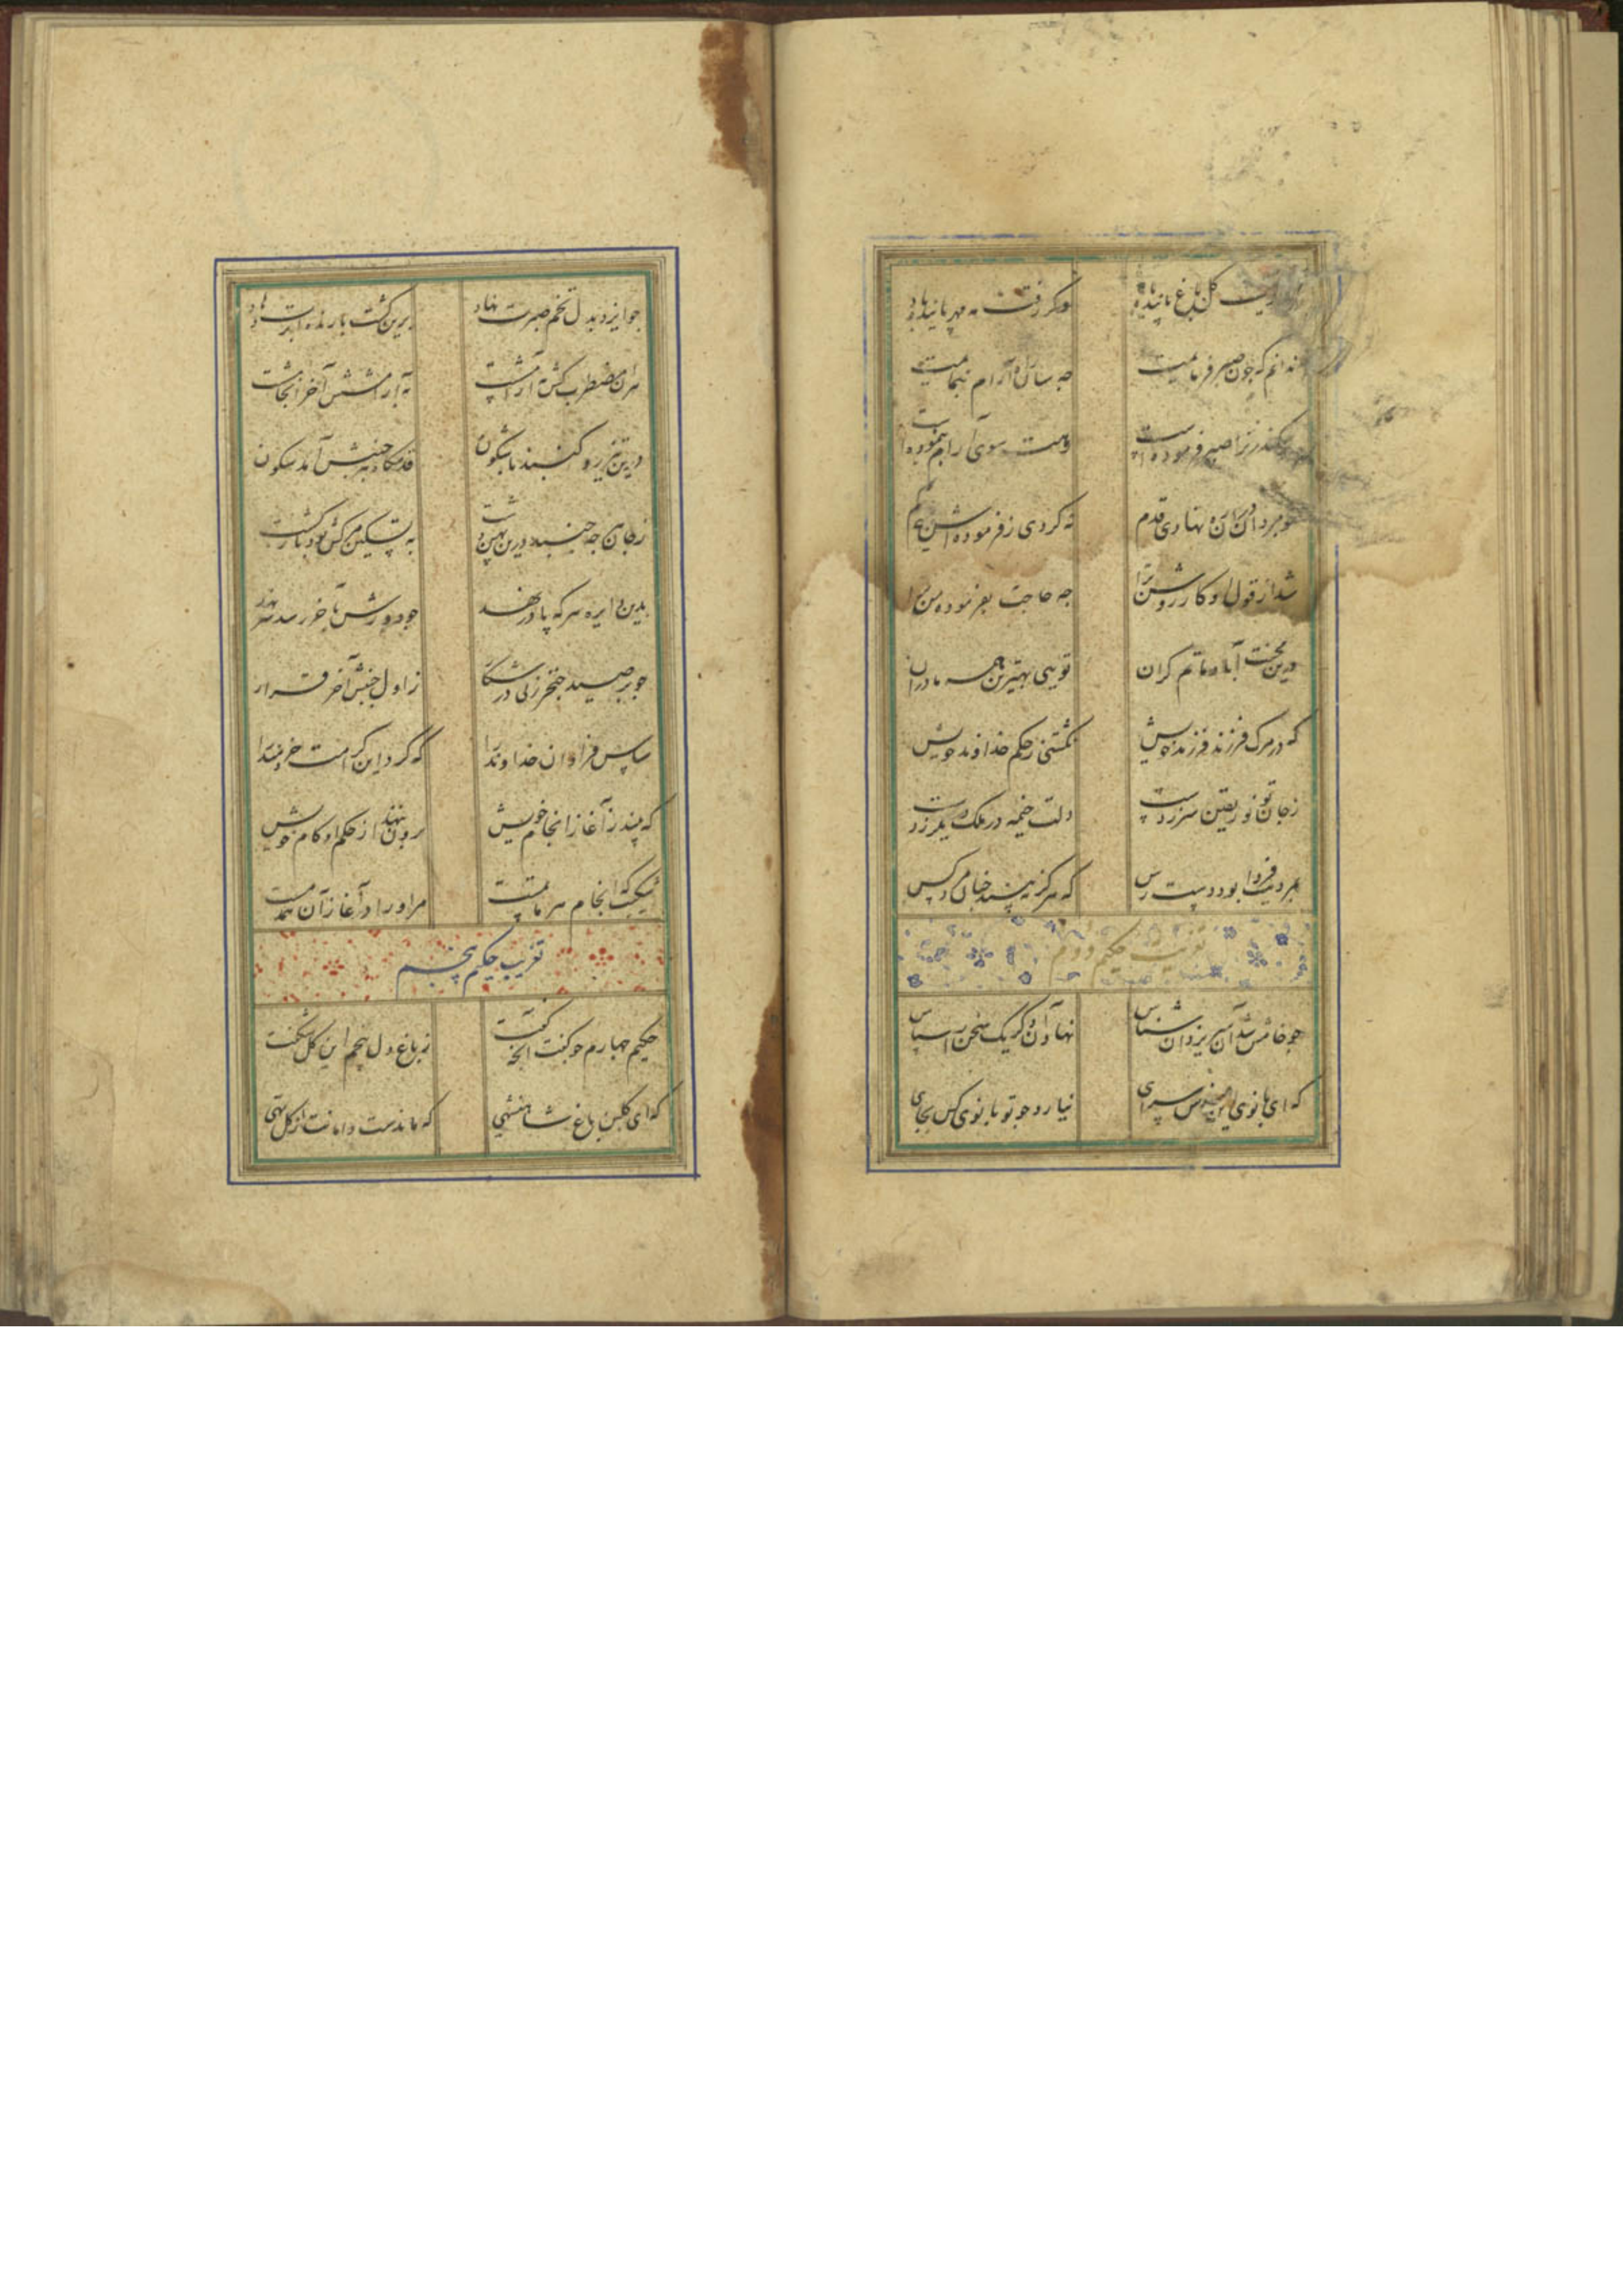 گل باغ پاینده باد وگر رفت مه مهر پاینده باد
ندانم که چون صبر فرمایمت چه سان راه آرام بنمایمت
سکندر ترا صبر فرموده است سوی آرام بنموده است
چو مردان دران ره نهادی قدم نه کردی ز فرموده اش هیچ کم
شد از قول او کار روشن ترا چه حاجت بفرموده من ترا
درین محنت آباد ماتم گران تویی بهترین همه مادران
که در مرگ فرزند فرزند خویش نگشتی ز حکم خداوند خویش
ز جان تو نور یقین سر زدست دلت خیمه در ملک دیگر زدست
بمردیت فردا بود دست رس که هرگز نبیند چنان مرد کس
تعزیت حکیم دوم
چو خامش شد آن پیر یزدان شناس نهاد آن دگر یک سخن را اساس
که ای بانوی این مقدس سرای نیارد چو تو بانوی کس بجای
چو ایزد بدل تخم صبرت نهاد برین کشت بارنده ابریت باد
مضطرب کش نه آخر
درین تیز رو گنبد جنبش آمد سکون
درین پهن دشت به تسکین کش بود بازگشت
بدین دایره هر که پا درنهد چو دورش بآخر رسد سر نهد
چو بر صید خنجر زنی در شکار ز اول جنبش آخر قرار
سپاس فراوان خداوند را که کرد این کرامت خردمند را
که بیند ز آغاز انجام خویش برون ننهد از حکم او گام خویش
که انجام هر ماتمست مر او را در آغاز آن همدمست
تعزیت حکیم پنجم
حکیم چهارم چو گفت آنچه گفت ز باغ دل پنجم این گل شکفت
که ای گلبن باغ شاهنشهی که ماندست دامانت از گل تهی